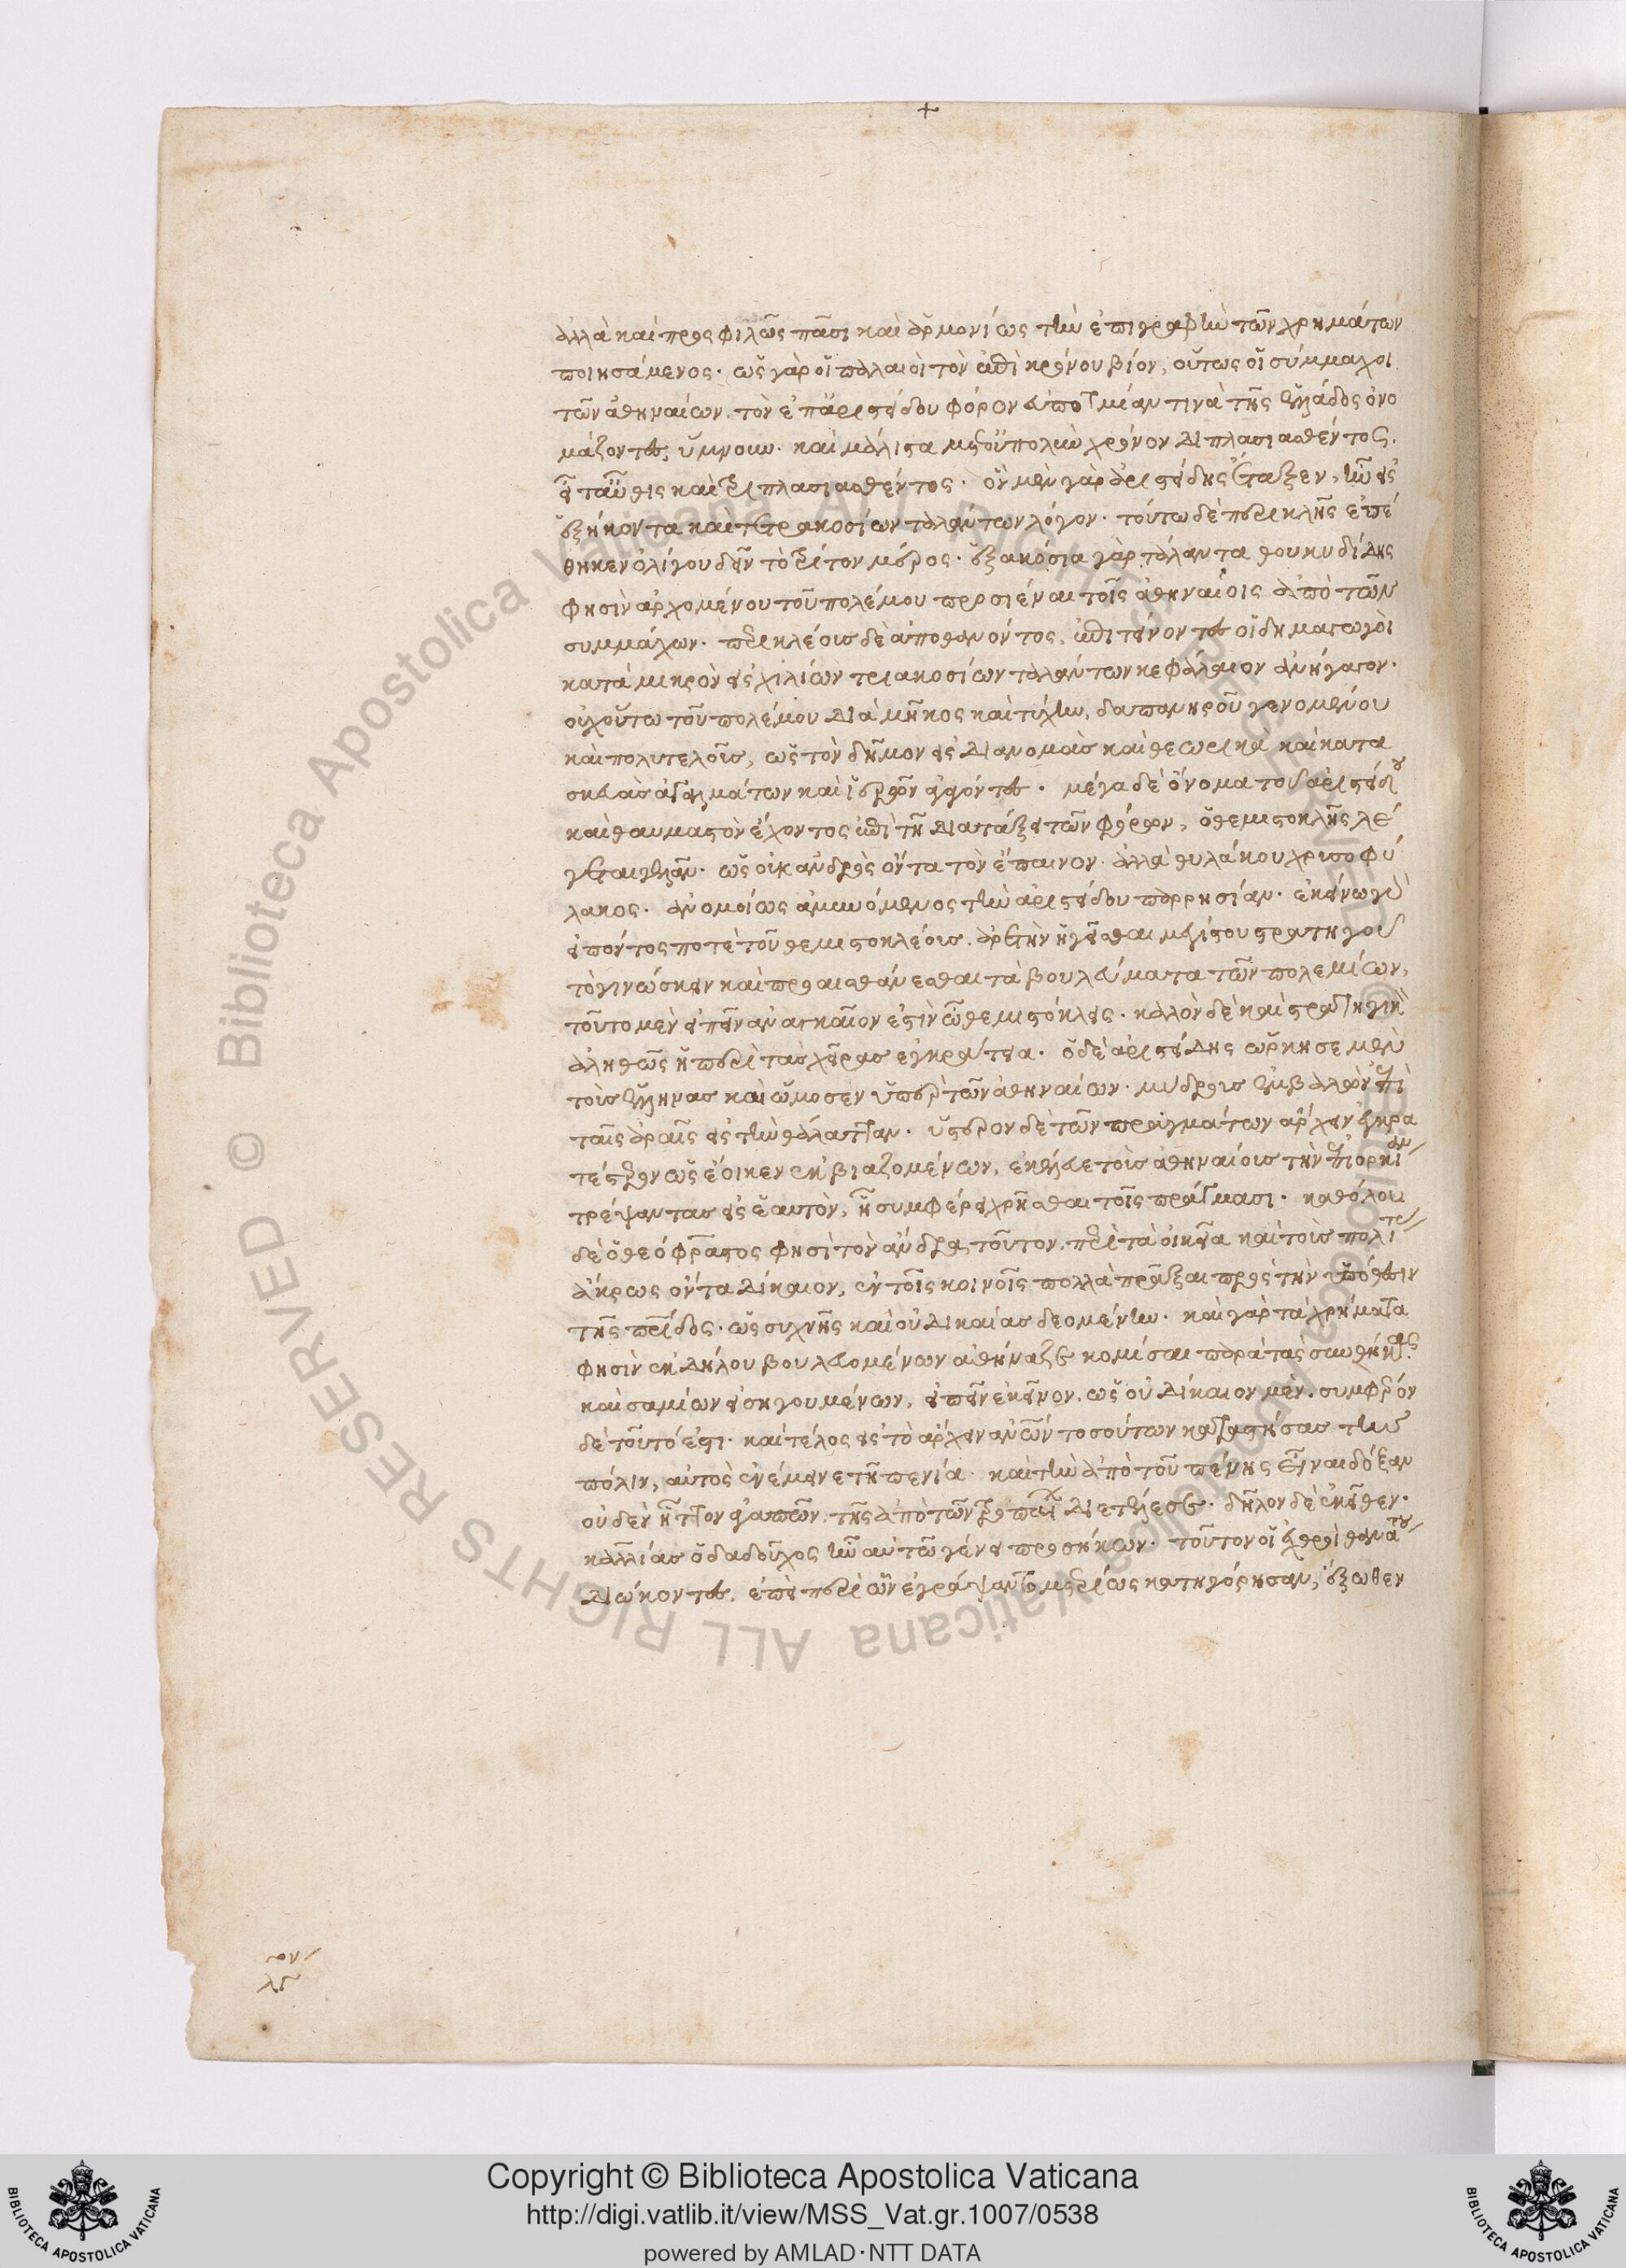 +
ἀλλὰ καὶ προσφιλῶς πᾶσι καὶ ἁρμονίως τὴν ἐπιγραφὴν τῶν χρημάτων
ποιησάμενος. ὡς γὰρ οἱ παλαιοὶ τὸν ἐπὶ κρόνου βίον, οὕτως οἱ σύμμαχοι
τῶν ἀθηναίων, τὸν ἐπ' ἀριστείδου φόρον εὐποτμίαν τινὰ τῆς ἑλλάδος ὀνο
μάζοντες, ὕμνουν. καὶ μάλιστα μετ' οὐ πολὺν χρόνον διπλασιασθέντος,
εἶτ' αὖθις καὶ τριπλασιασθέντος. ὃν μὲν γὰρ ἀριστείδης ἔταξεν, ἦν εἰς
ἑξήκοντα καὶ τετρακοσίων ταλάντων λόγον. τούτω δὲ περικλῆς ἐπέ
θηκεν ὀλίγου δεῖν τὸ τρίτον μέρος. ἑξακόσια γὰρ τάλαντα θουκυδίδης
φησὶν ἀρχομένου τοῦ πολέμου προσιέναι τοῖς ἀθηναίοις ἀπὸ τῶν
συμμάχων. περικλέους δὲ ἀποθανόντος, ἐπιτείνοντες οἱ δημαγωγοὶ
κατὰ μικρὸν εἰς χιλίων τριακοσίων ταλάντων κεφάλαιον ἀνήγαγον.
οὐχ οὕτω τοῦ πολέμου διὰ μῆκος καὶ τύχην, δαπανηροῦ γενομένου
καὶ πολυτελοῦς, ὡς τὸν δῆμον εἰς διανομὰς καὶ θεωρικὰ καὶ κατα
σκευὰς ἀγαλμάτων καὶ ἱερῶν ἀγαγόντες. μέγα δὲ ὄνομα τοῦ ἀριστείδου
καὶ θαυμαστὸν ἔχοντος ἐπὶ τῆ διατάξει τῶν φόρων, ὁ θεμιστοκλῆς λέ
γεται γελᾶν. ὡς οὐκ ἀνδρὸς ὄντα τὸν ἔπαινον. ἀλλὰ θυλάκου χρυσοφύ
λακος. ἀνομοίως ἀμυνόμενος τὴν ἀριστείδου παρρησίαν. ἐκείνω γὰρ
εἰπόντος ποτὲ τοῦ θεμιστοκλέους, ἀρετὴν ἡγεῖσθαι μεγίστου στρατηγοῦ
τὸ γινώσκειν καὶ προαισθάνεσθαι τὰ βουλεύματα τῶν πολεμίων,
τοῦτο μὲν εἰπεῖν ἀναγκαῖον ἐστὶν ὦ θεμιστόκλεις. καλὸν δὲ καὶ στρατηγικὸν
ἀληθῶς ἡ περὶ τὰς χεῖρας ἐγκράτεια. ὁ δὲ ἀριστείδης ὥρκησε μὲν
τοὺς ἕλληνας καὶ ὤμοσεν ὑπὲρ τῶν ἀθηναίων. μύδρους ἐμβαλὼν ἐπὶ
ταῖς ἀραῖς εἰς τὴν θάλατταν. ὕστερον δὲ τῶν πραγμάτων ἄρχειν ἐγκρα
τέστερον ὡς ἔοικεν ἐκβιαζομένων, ἐκέλευε τοὺς ἀθηναίους τὴν ἐπιορκίαν
τρέψαντας εἰς ἑαυτὸν, ἧ συμφέρει χρῆσθαι τοῖς πράγμασι. καθόλου
δὲ ὁ θεόφραστος φησὶ τὸν ἄνδρα τοῦτον, περὶ τὰ οἰκεῖα καὶ τοὺς πολίτας
ἄκρως ὄντα δίκαιον, ἐν τοῖς κοινοῖς πολλὰ πρᾶξαι πρὸς τὴν ὑπόθεσιν
τῆς πατρίδος. ὡς συχνῆς καὶ οὐ δικαίας δεομένην. καὶ γὰρ τὰ χρήματα
φησὶν ἐκ δήλου βουλευομένων ἀθήναζε κομίσαι παρὰ τὰς συνθήκας
καὶ σαμίων εἰσηγουμένων, εἰπεῖν ἐκεῖνον, ὡς οὐ δίκαιον μὲν, συμφέρον
δὲ τοῦτό ἐστι. καὶ τέλος εἰς τὸ ἄρχειν ἀνθρώπων τοσούτων καταστήσας τὴν
πόλιν, αὐτὸς ἐνέμεινε τῆ πενία. καὶ τὴν ἀπὸ τοῦ πένης εἶναι δόξαν
οὐδὲν ἧττον ἀγαπῶν, τῆς ἀπὸ τῶν τροπαίων διετέλεσε. δῆλον δὲ ἐκεῖθεν.
καλλίας ὁ δαδοῦχος ἦν αὐτῶ γένει προσήκων. τοῦτον οἱ ἐχθροὶ θανάτου
διώκοντες, ἐπεὶ περὶ ὧν ἐγράψαντο μετρίως κατηγόρησαν, ἔξωθεν
Copyright © Biblioteca Apostolica Vaticana
http://digi.vatlib.it/view/MSS_Vat.gr.1007/0538
powered by AMLAD·NTT DATA
BIBLIOTECA APOSTOLICA VATICANA
BIBLIOTECA APOSTOLICA VATICANA
© Biblioteca Apostolica Vaticana ALL RIGHTS RESERVED